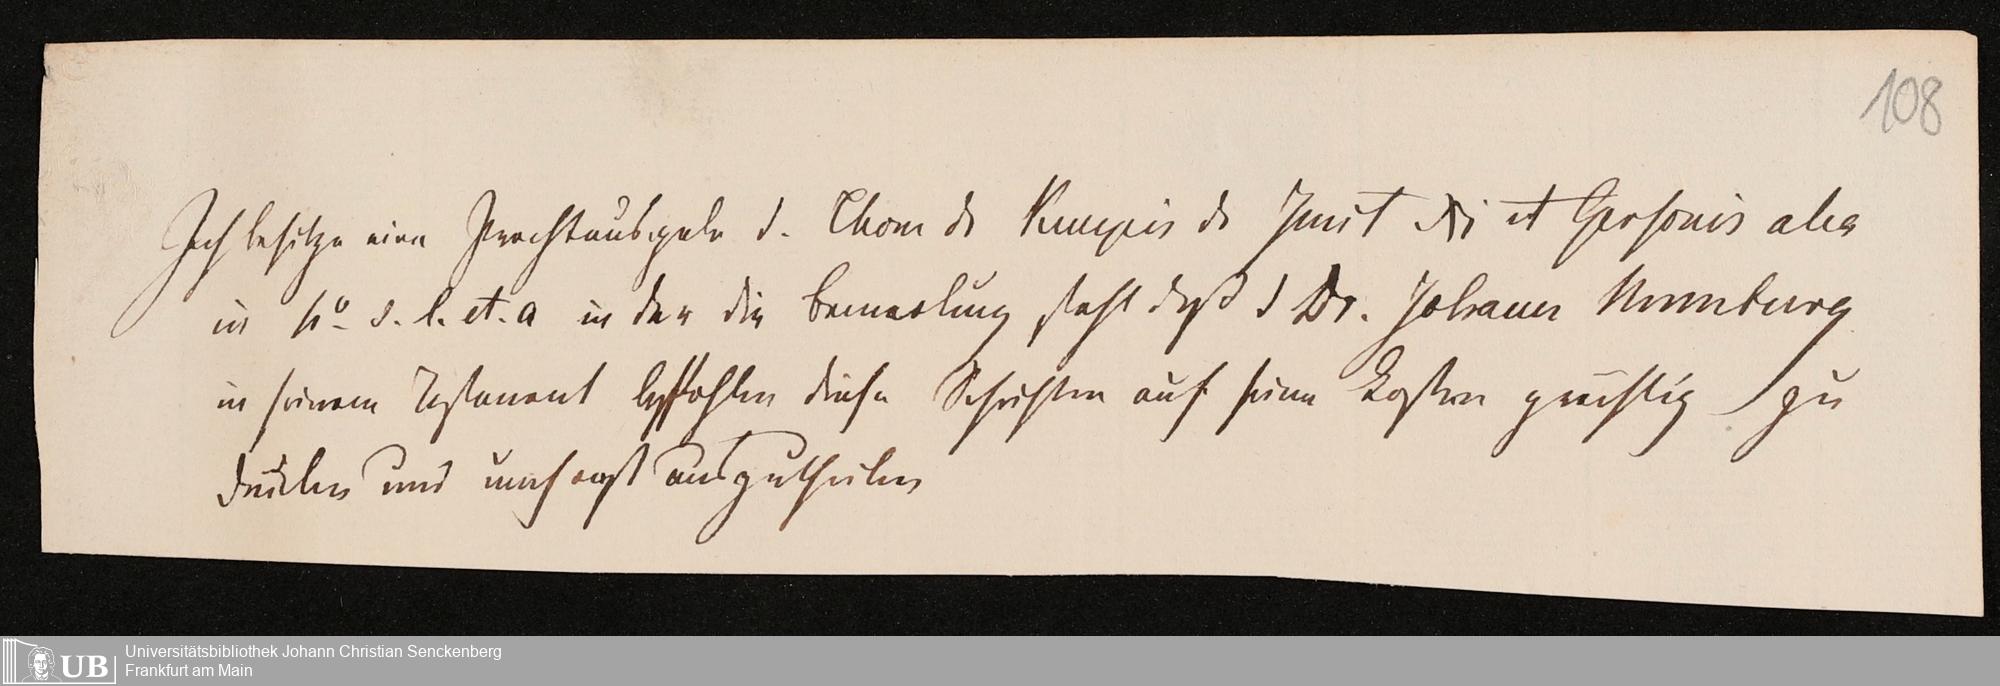 108
Ich besitze eine Prachtausgabe d. Thom de Kempis de Imit Xti et Gersonis alia
in s. l. et. a in der die Bemerkung steht daß d Dr. Johann
in seinem Testament befohlen diese Schriften auf seine Kosten zu
drucken und umsonst auszutheilen
UB
Universitätsbibliothek Johann Christian Senckenberg
Frankfurt am Main